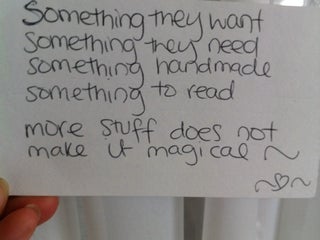 Something they want
Something they need
Something handmade
something to read
more stuff does not
make it magical ~
~♡~